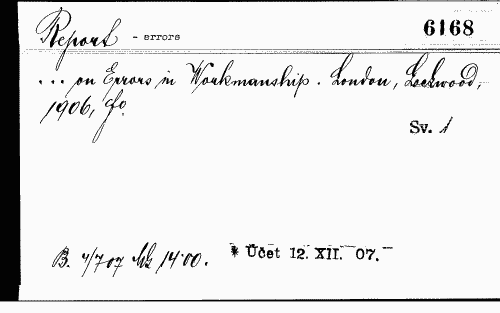 Report - errors 6168
... on Errors in Workmanship. London, Lockwood,
1906, fo.
Sv. 1
B. 4/7 07 Mk 14.00. * Účet 12. XII. 07.